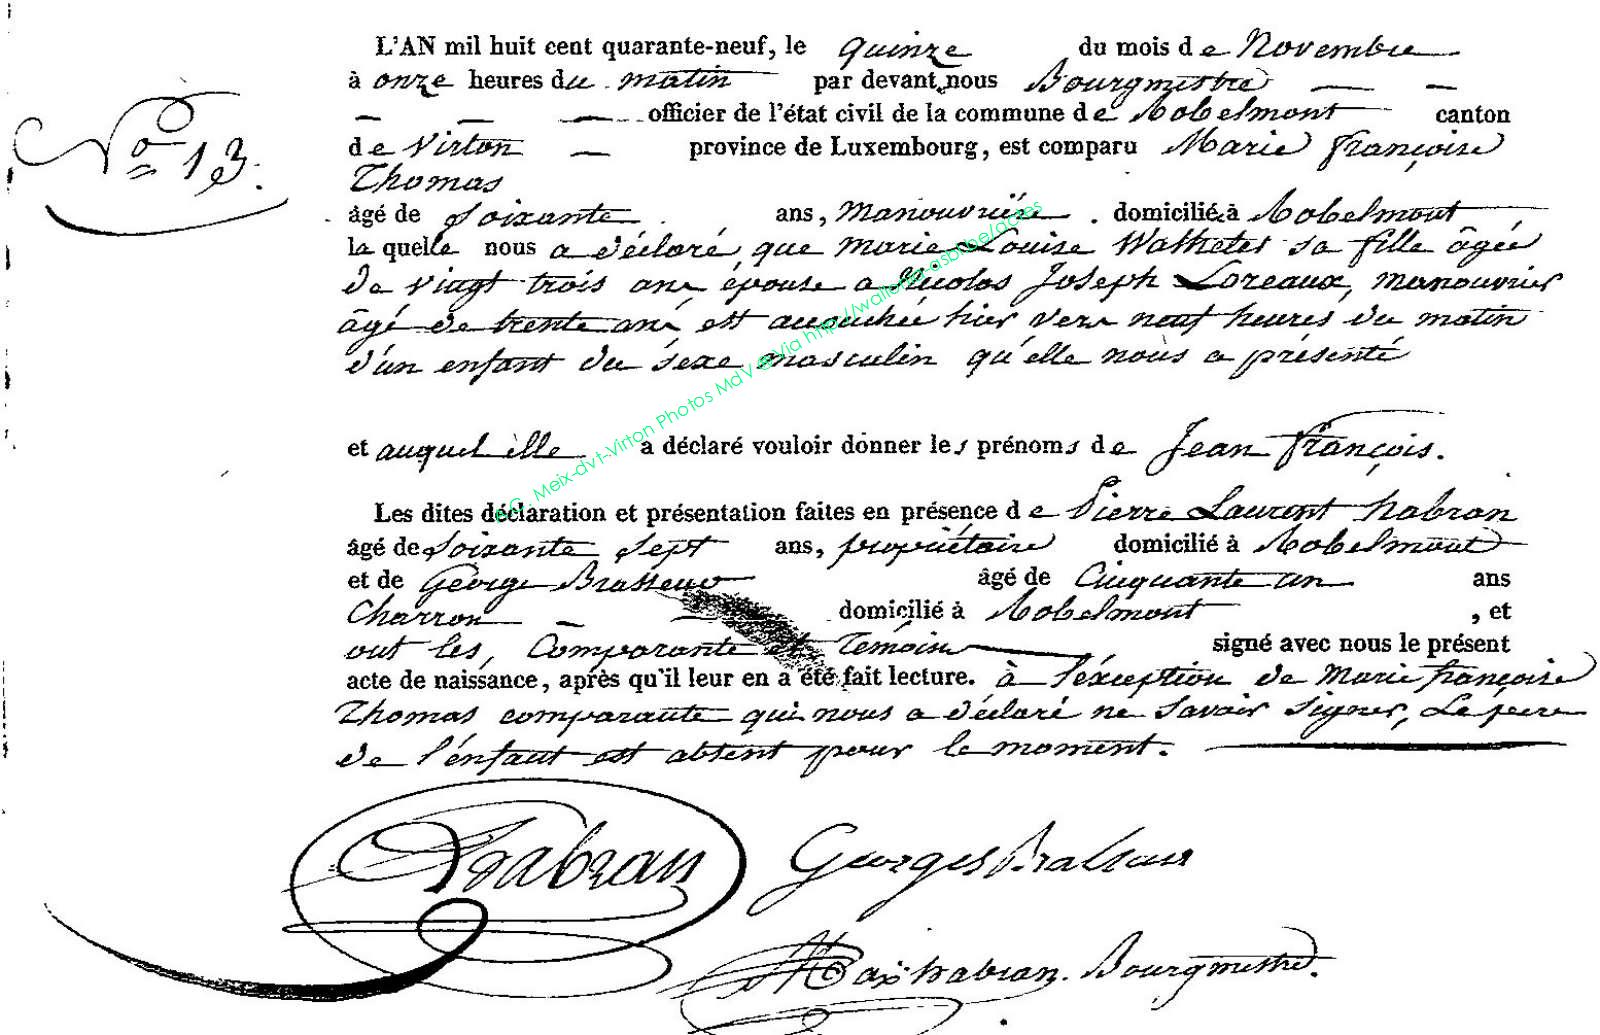 L'AN mil huit cent quarante-neuf, le quinze du mois de Novembre
à onze heures du matin par devant nous Bourgmestre
officier de l'état civil de la commune de Robelmont canton
No 13.
de Virton province de Luxembourg, est comparu Marie françoise
Thomas
âgé de Soixante ans, Manouvrière domicilié à Robelmont
la quelle nous a déclaré que Marie Louise Wathelet sa fille âgée
de vingt trois ans, épouse a Nicolas Joseph Loreaux, manouvrier
âgé de trente ans, est accouchée hier vers neuf heures du matin
d'un enfant du sexe masculin qu'elle nous a présenté
et auquel elle a déclaré vouloir donner les prénoms de Jean François.
Les dites déclaration et présentation faites en présence de Pierre Laurent habran
âgé de Soixante Sept ans, propriétaire domicilié à Robelmont
et de George Brasseur âgé de Cinquante un ans
Charron domicilié à Robelmont, et
ont les, Comparante et Témoins signé avec nous le présent
acte de naissance, après qu'il leur en a été fait lecture. à l'éxception de Marie françoise
Thomas comparante qui nous a déclaré ne Savoir Signer, Le père
de l'énfant est absent pour le moment.
Habran Georges Brasseur
Max habran, Bourgmestre.
P.G. Meix-dvt-Virton Photos MdV @Via http://wallonia-asbl.be/actes